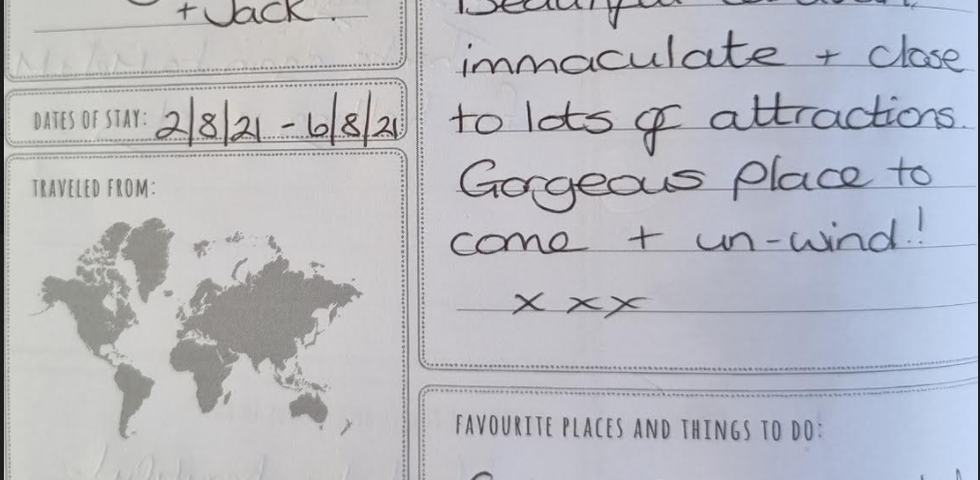 + Jack.
DATES OF STAY: 2/8/21 - 6/8/21
TRAVELED FROM:
Beautiful
immaculate + close
to lots of attractions.
Gorgeous place to
come + un-wind!
x x x
FAVOURITE PLACES AND THINGS TO DO: